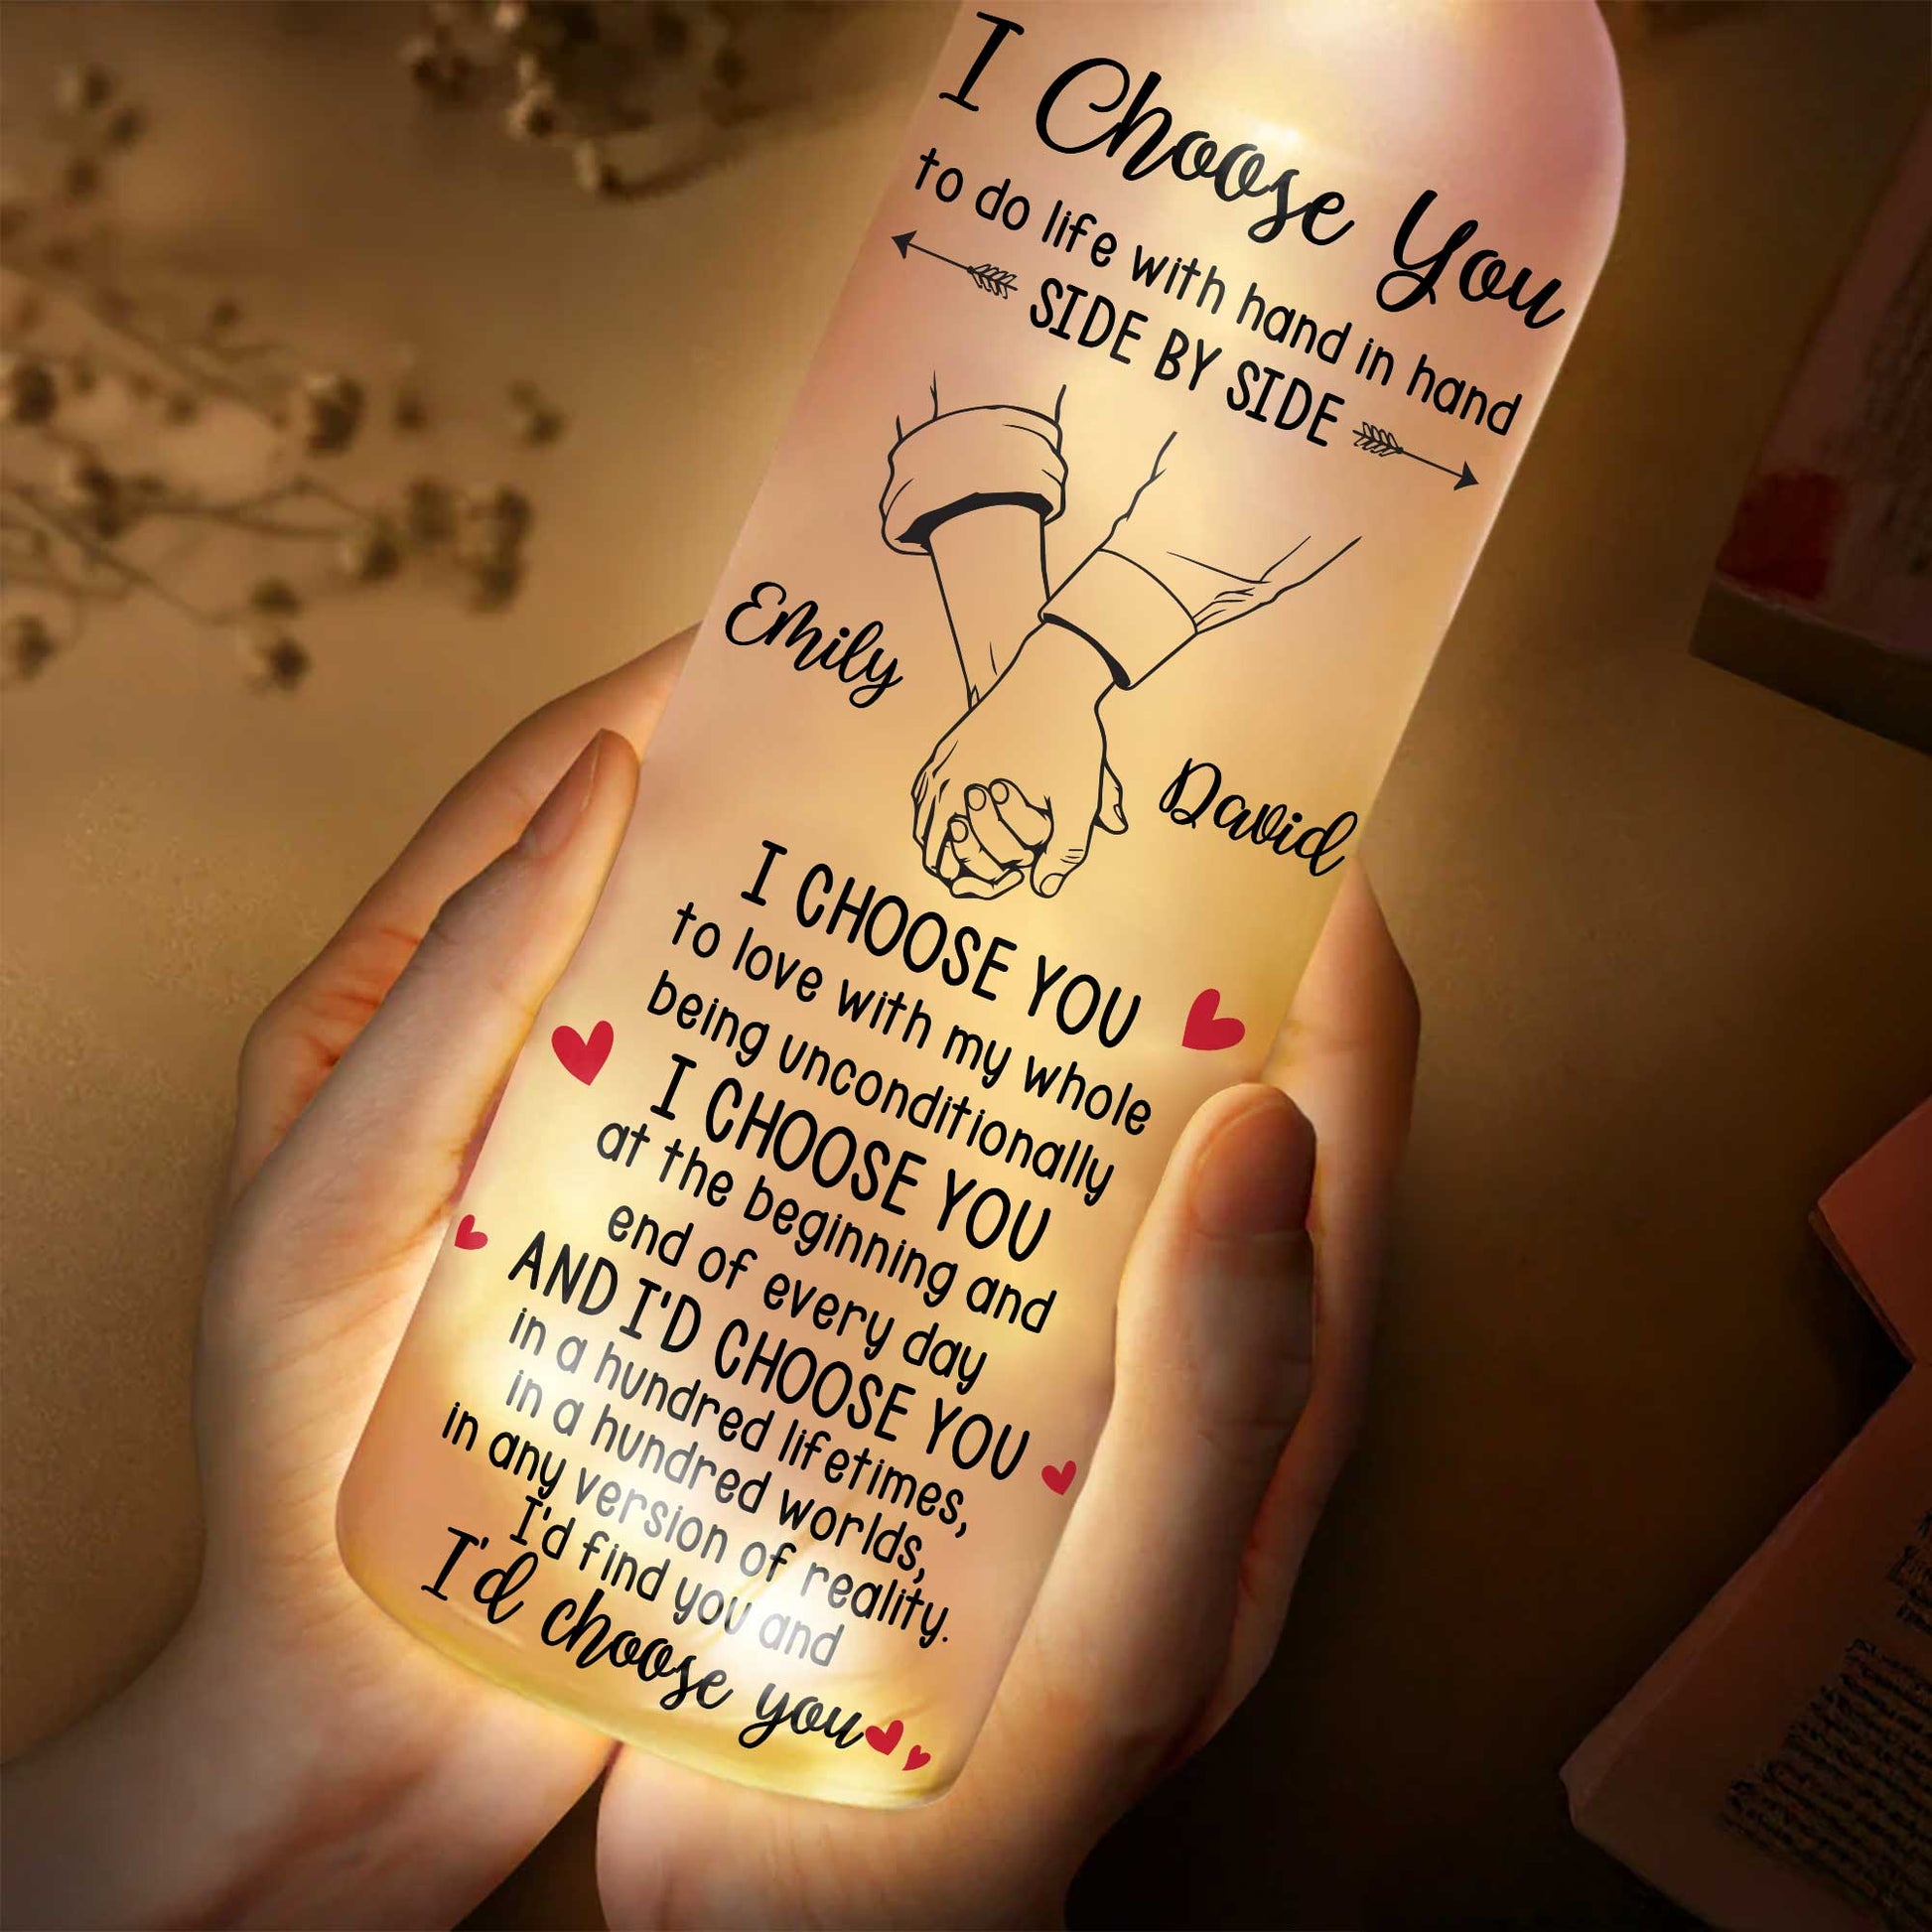 I Choose You
to do life with hand in hand
SIDE BY SIDE
Emily
David
I CHOOSE YOU
to love with my whole
being unconditionally
I CHOOSE YOU
at the beginning and
end of every day
AND I'D CHOOSE YOU
in a hundred lifetimes,
in a hundred worlds,
in any version of reality.
I'd find you and
I'd choose you